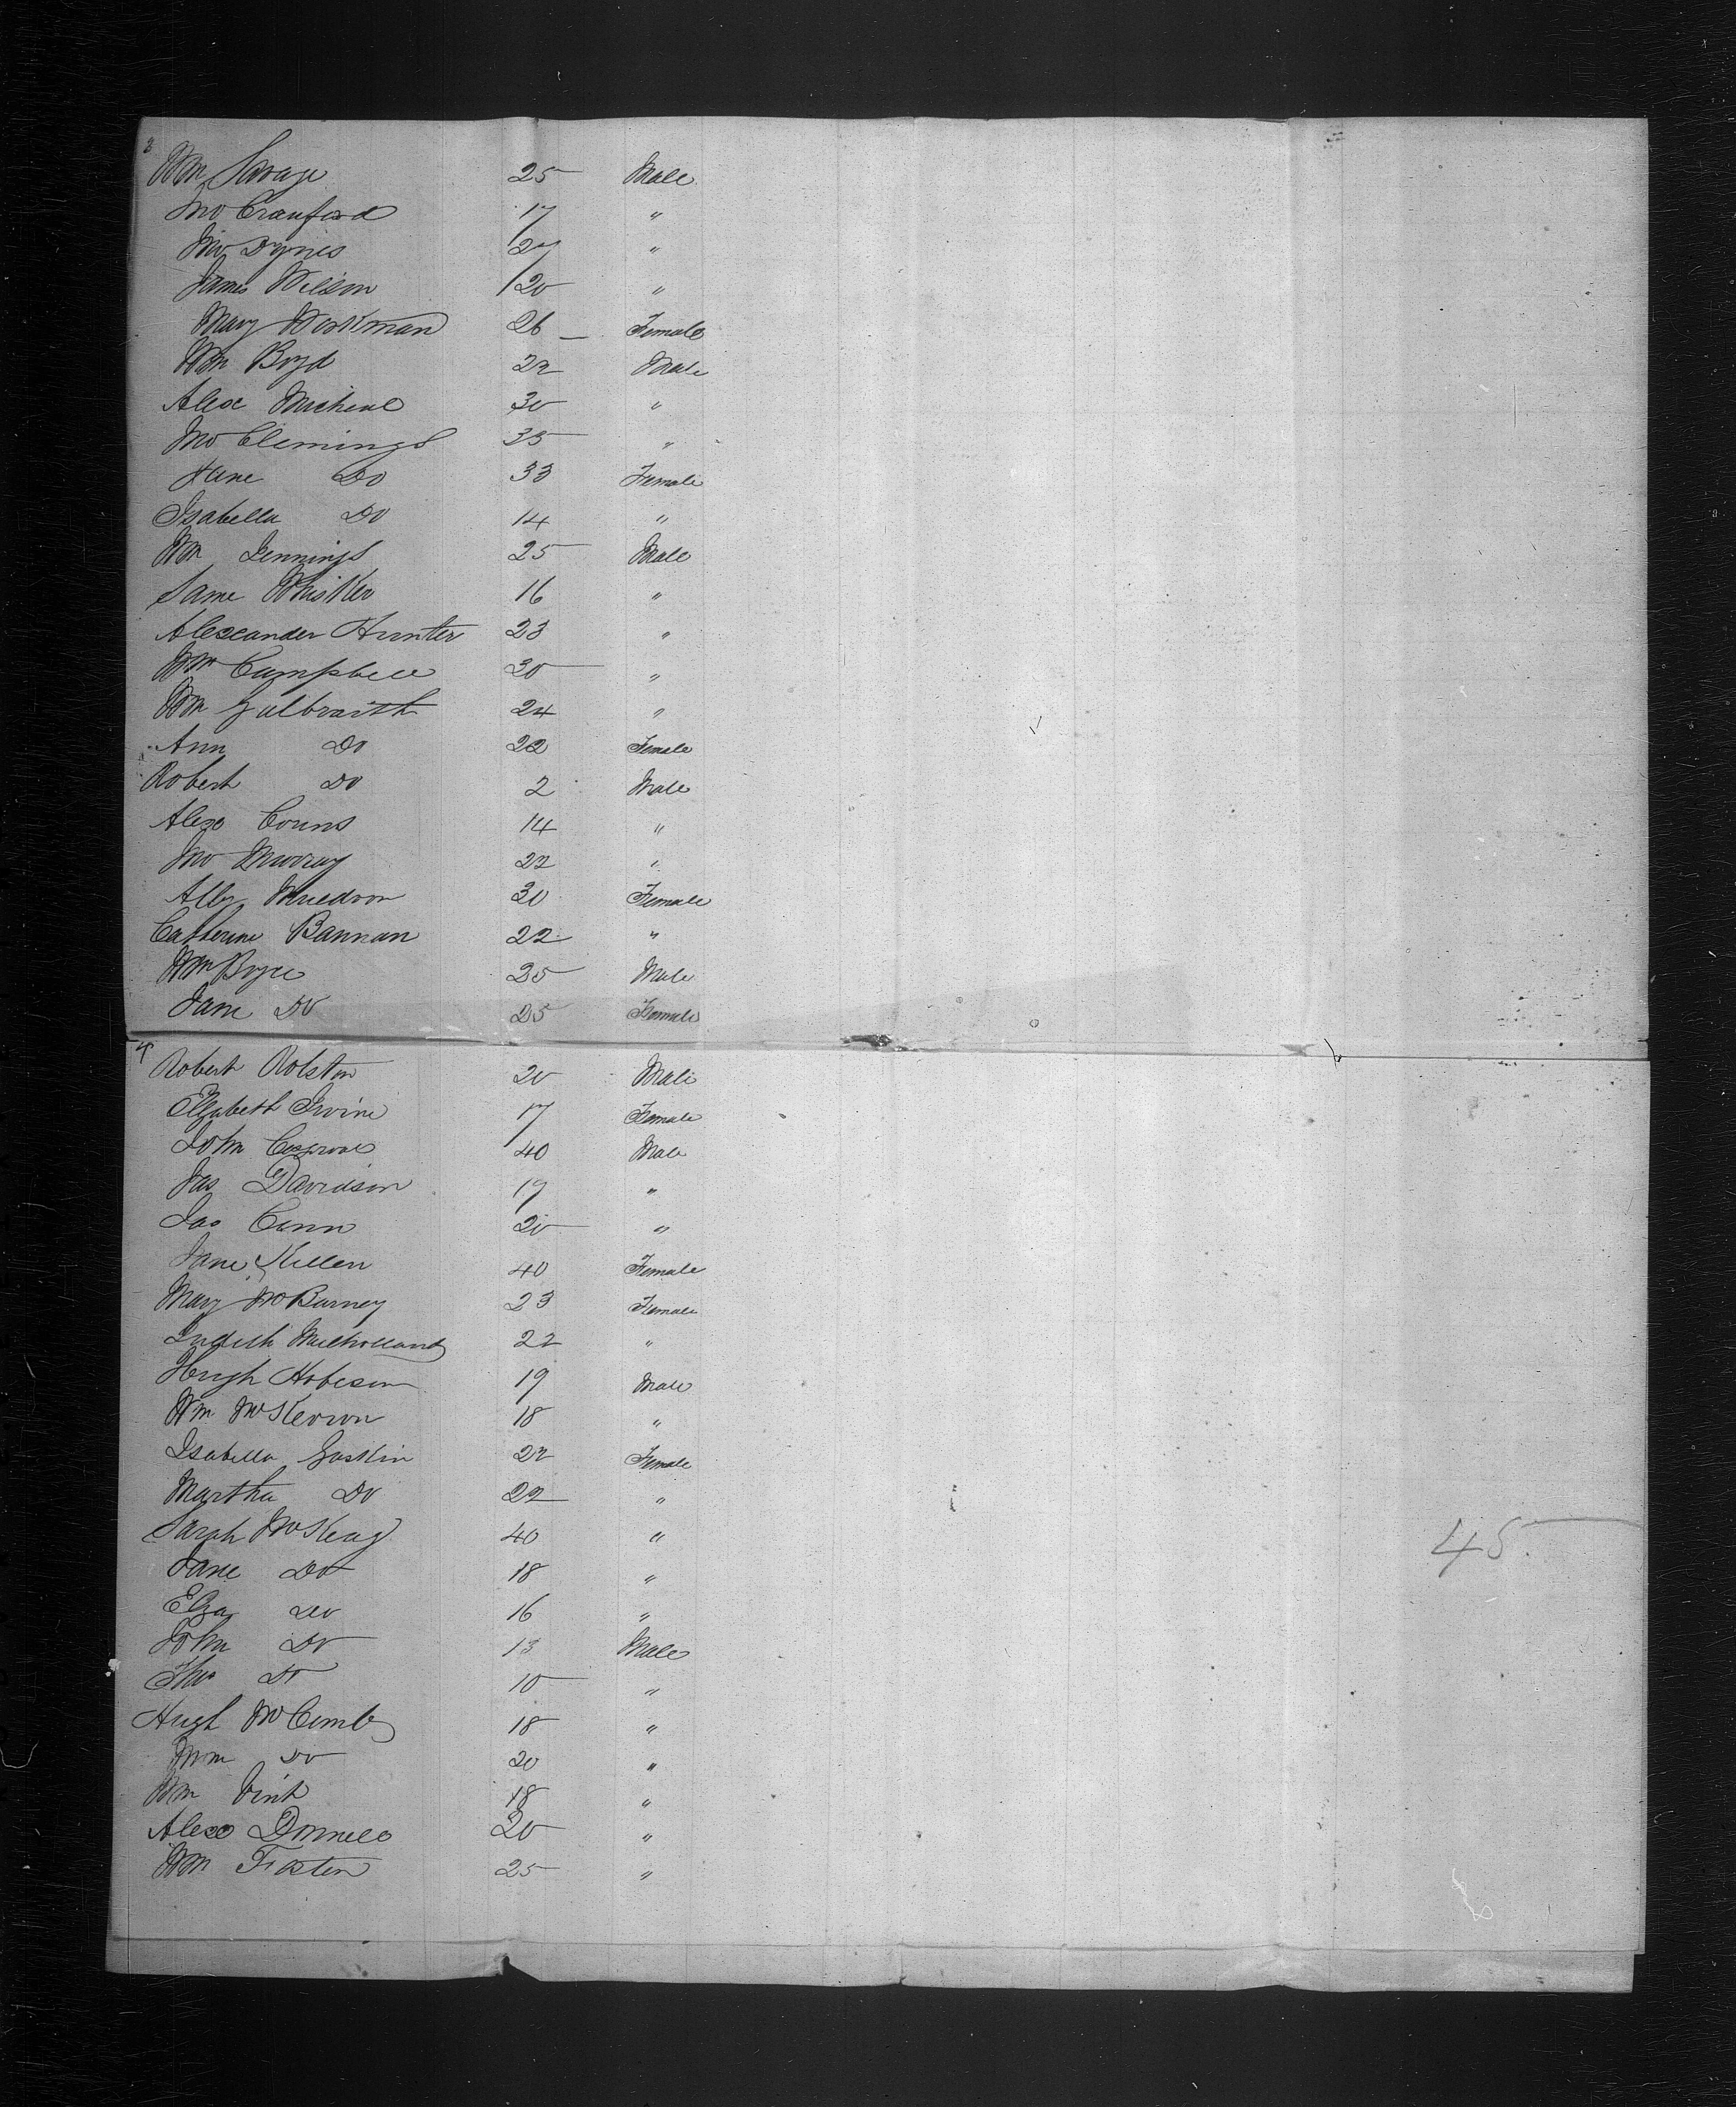 3
Wm Savage 25 Male
Jno Craufard 17 "
Jno Dynes 27 "
James Wilson 20 "
Mary Workman 26 — Female
Wm Boyd 22 Male
Alex Micheal 30 "
Jno Clemings 35 "
Jane Do 33 Female
Isabella Do 14 "
Wm Jennings 25 Male
Same Whisker 16 "
Alexander Hunter 23 "
Wm Campbell 30 "
Wm Galbraith 24 "
Ann Do 22 Female
Robert Do 2 Male
Alex Couns 14 "
Jno Murray 22 "
Ally Muldron 30 Female
Catherine Bannan 22 "
Wm Boyce 25 Male
Jane Do 25 Female
4
Robert Rolston 20 Male
Elizabeth Irvine 17 Female
John Cosgrove 40 Male
Jas Davidson 19 "
Jas Cann 20 "
Jane Killen 40 Female
Mary McBurney 23 Female
Judith Mulholland 22 "
Hugh Hobeson 19 Male
Wm McKeown 18 "
Isabella Gaskin 22 Female
Martha Do 22 "
Sarah McKeag 40 "
Jane Do 18 "
Eliza Do 16 "
45
John Do 13 Male
Thos Do 10 "
Hugh McComb 18 "
Wm Do 20 "
Wm Vint 18 "
Alex Donnell 20 "
Wm Fosten 25 "